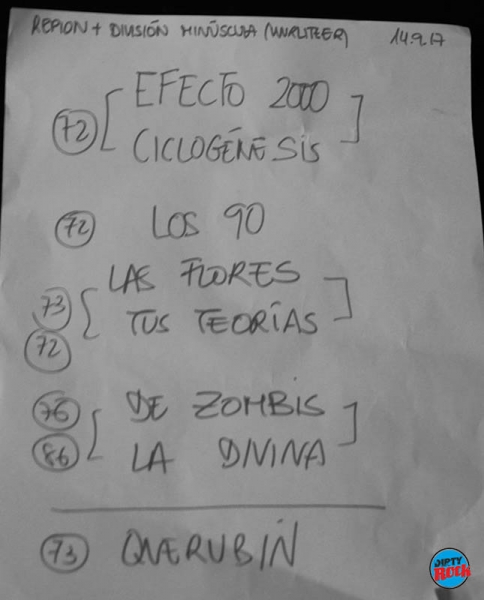 REPION + DIVISIÓN MINÚSCULA (WURLITZER) 14.9.17
EFECTO 2000
72
CICLOGÉNESIS
72 LOS 90
LAS FLORES
73
TUS TEORÍAS
72
76 DE ZOMBIS
86 LA DIVINA
73 QUERUBÍN
DIRTY
ROCK